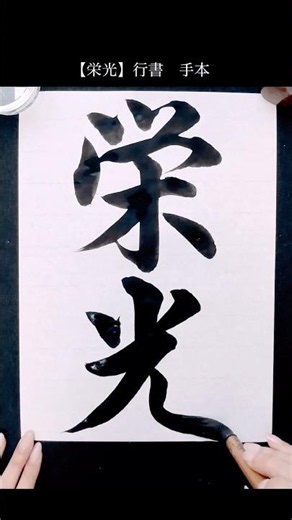 【栄光】行書　手本
栄光